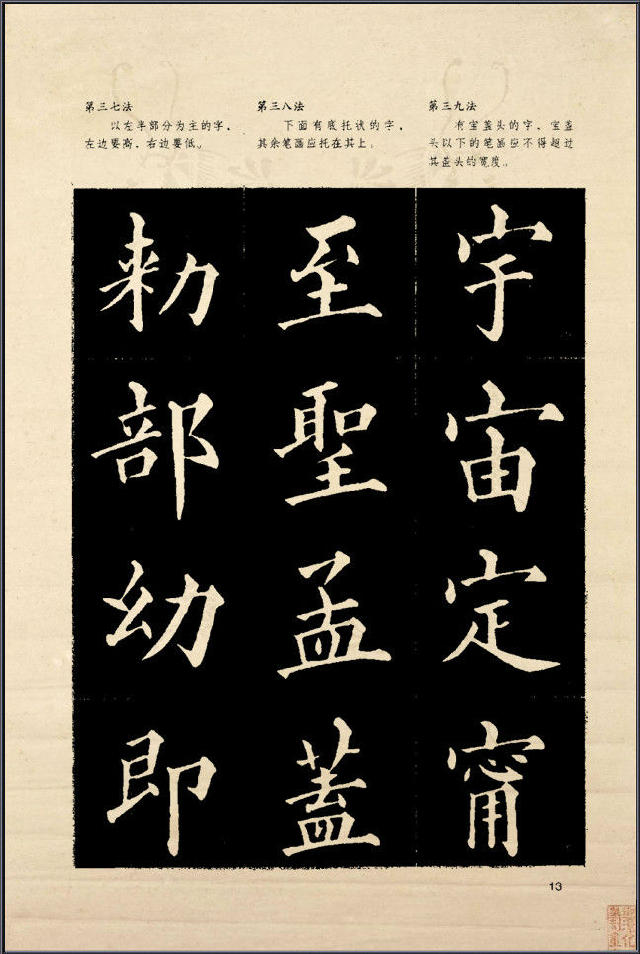 第三七法
以左半部分为主的字，
左边要高，右边要低。
第三八法
下面有底托状的字，
其余笔画应托在其上。
第三九法
有宝盖头的字，宝盖
头以下的笔画应不得超过
其盖头的宽度。
宇
宙
定
甯
至
聖
孟
蓋
勑
部
幼
即
13